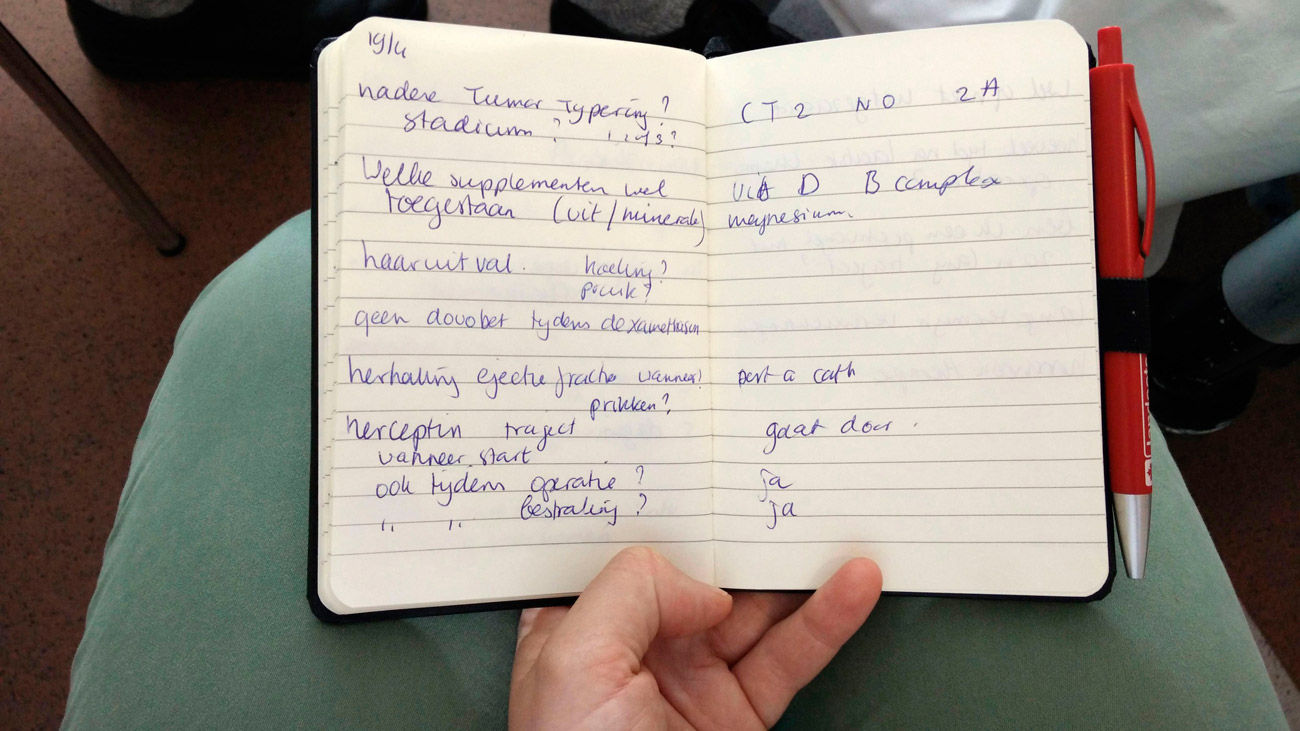 19/4
nadere Tumor Typering?
stadium ? 1, 2, of 3?
Welke supplementen wel
toegestaan (vit/mineralen)
haaruitval. koeling?
pruik?
geen dovobet tijdens dexamethason
herhaling ejectie fractie wanneer?
prikken?
herceptin traject
wanneer start
ook tijdens operatie ?
" " bestraling ?
CT2 N0 2A
vit D B complex
magnesium.
port a cath
gaat door.
ja
ja